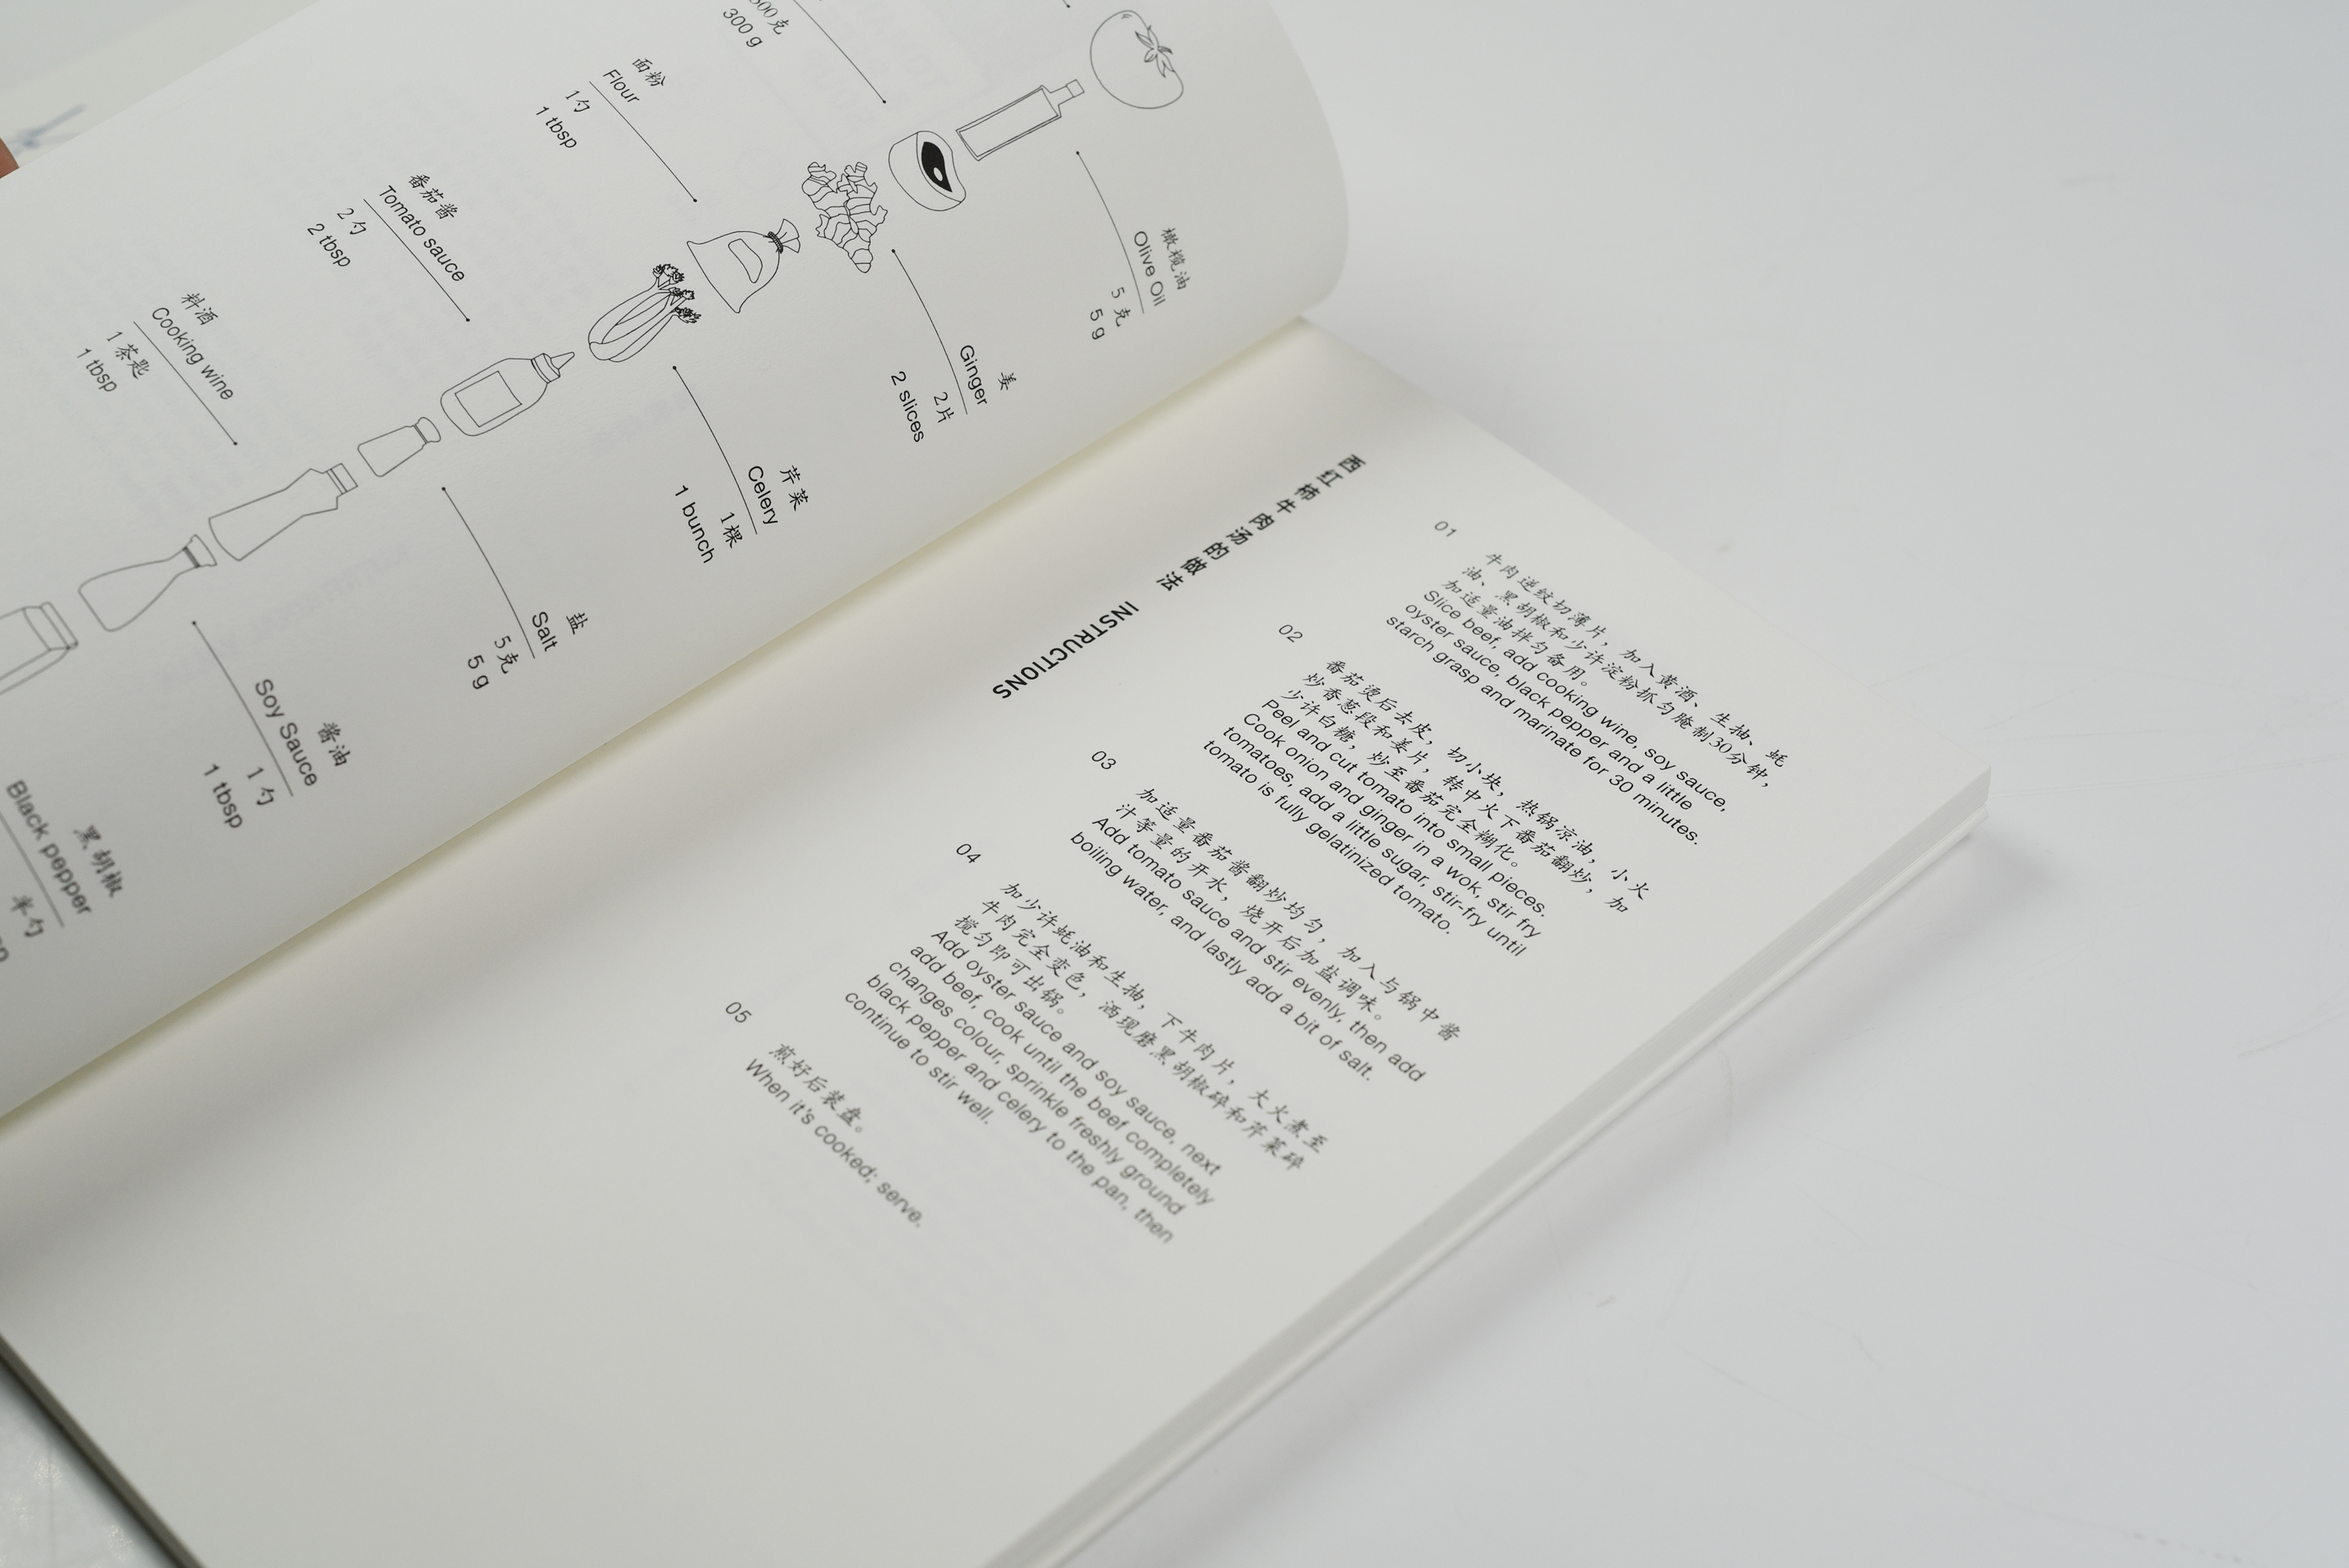 300 g
面粉
Flour
1勺
1 tbsp
番茄酱
Tomato sauce
2 勺
2 tbsp
料酒
Cooking wine
1 茶匙
1 tbsp
橄榄油
Olive Oil
5 克
5 g
姜
Ginger
2片
2 slices
芹菜
Celery
1棵
1 bunch
盐
Salt
5克
5 g
酱油
Soy Sauce
1 勺
1 tbsp
黑胡椒
Black pepper
半勺
西红柿牛肉汤的做法
INSTRUCTIONS
01
牛肉逆纹切薄片，加入黄酒、生抽、蚝
油、黑胡椒和少许淀粉抓匀腌制30分钟，
加适量油拌匀备用。
Slice beef, add cooking wine, soy sauce,
oyster sauce, black pepper and a little
starch grasp and marinate for 30 minutes.
02
番茄烫后去皮，切小块，热锅凉油，小火
炒香葱段和姜片，转中火下番茄翻炒，加
少许白糖，炒至番茄完全糊化。
Peel and cut tomato into small pieces.
Cook onion and ginger in a wok, stir fry
tomatoes, add a little sugar, stir-fry until
tomato is fully gelatinized tomato.
03
加适量番茄酱翻炒均匀，加入与锅中酱
汁等量的开水，烧开后加盐调味。
Add tomato sauce and stir evenly, then add
boiling water, and lastly add a bit of salt.
04
加少许蚝油和生抽，下牛肉片，大火煮至
牛肉完全变色，洒现磨黑胡椒碎和芹菜碎
搅匀即可出锅。
Add oyster sauce and soy sauce, next
add beef, cook until the beef completely
changes colour, sprinkle freshly ground
black pepper and celery to the pan, then
continue to stir well.
05
煎好后装盘。
When it's cooked; serve.